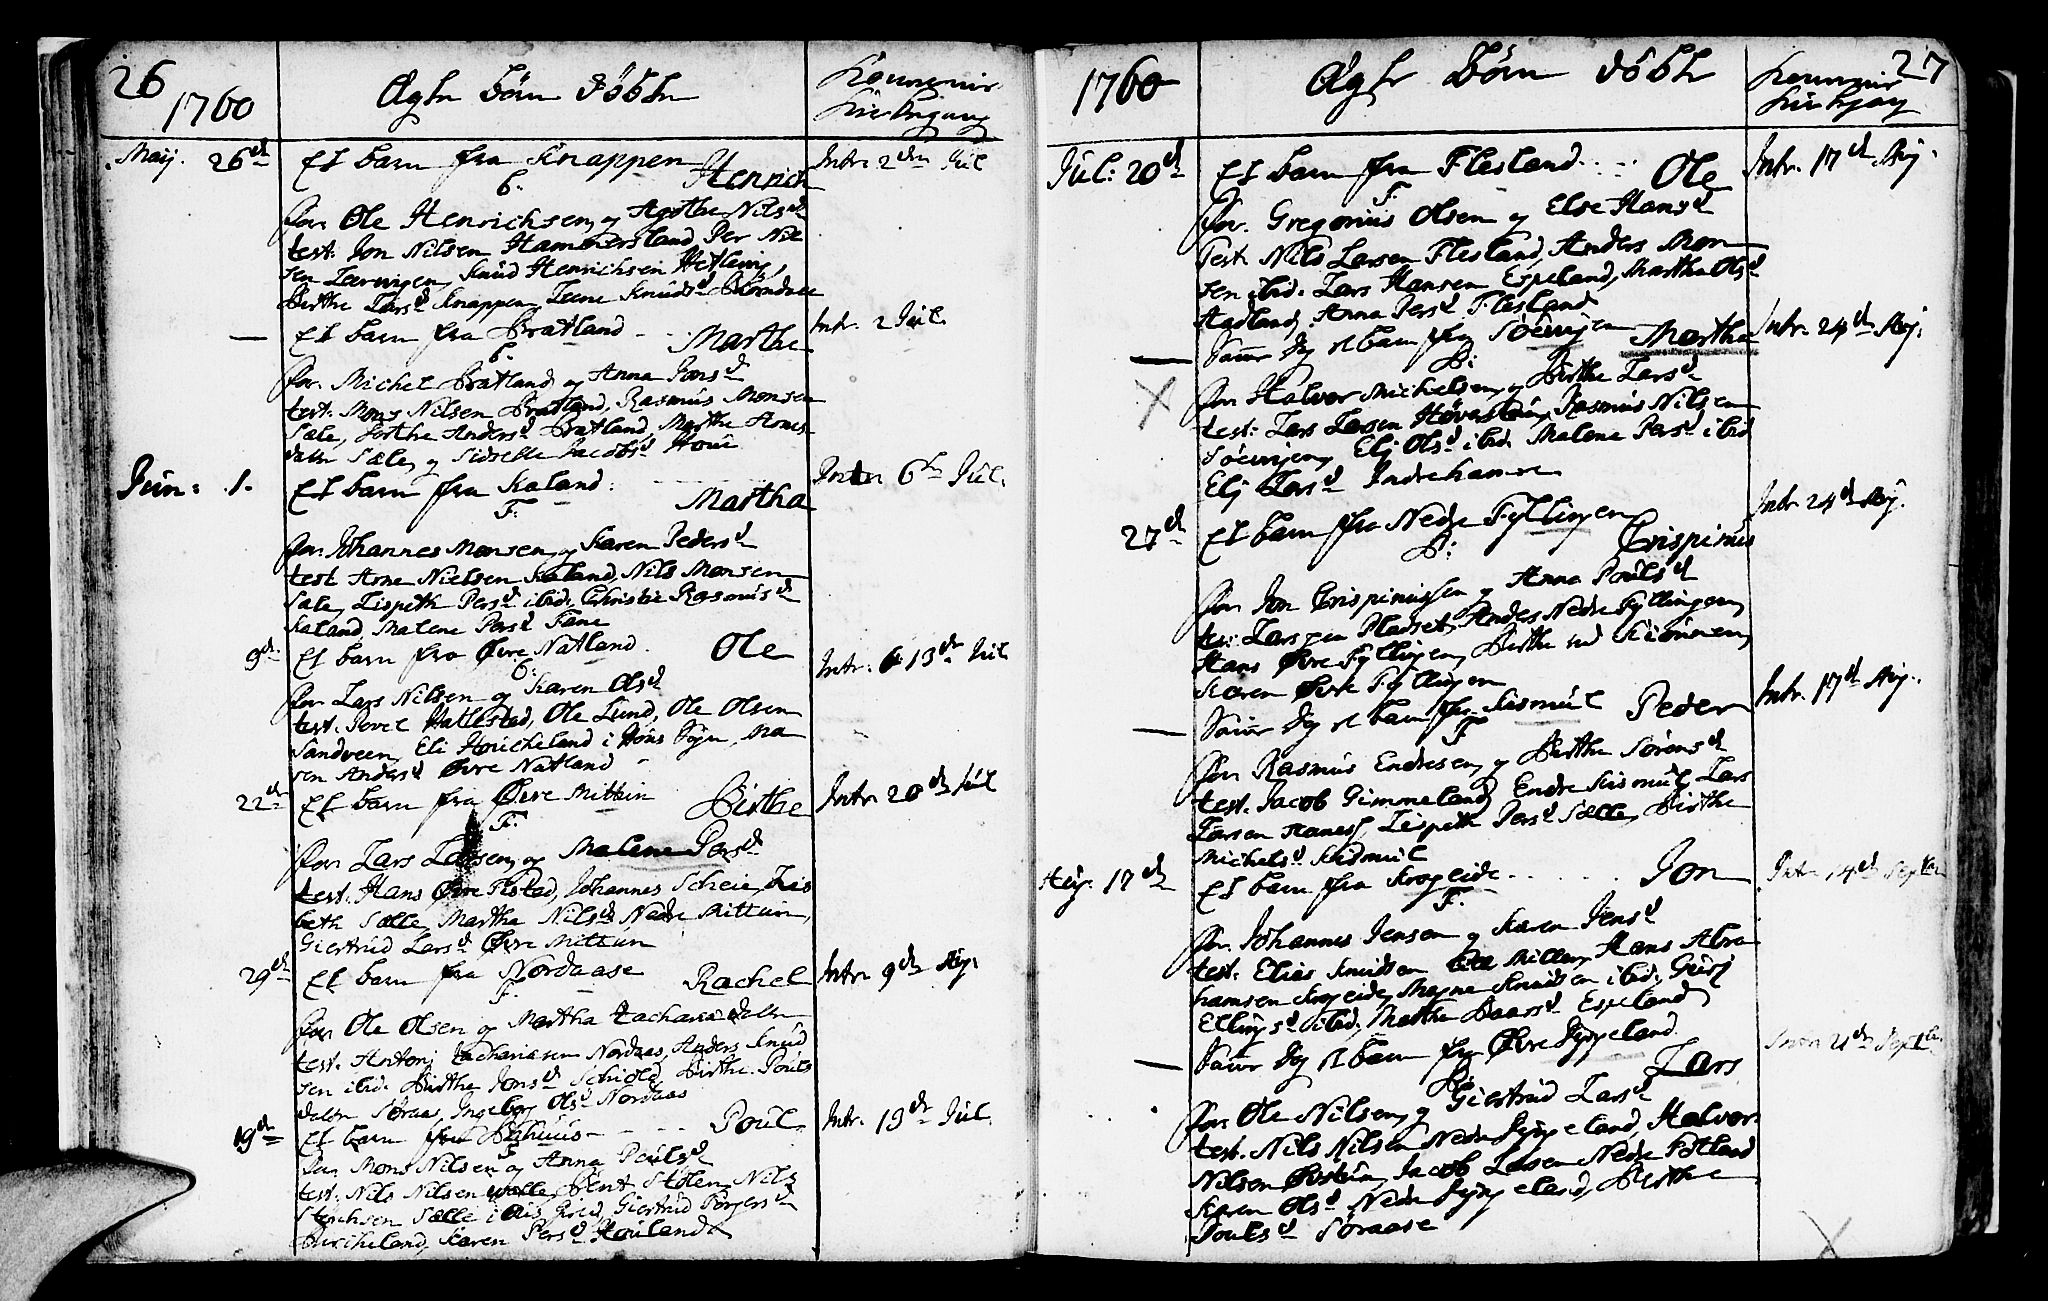 26
1760
Ægte börn döbte
Konernis
Kirkegang
Maij. 26de
Et barn fra Knappen
Henrich
F.
For. Ole Henrichsen og Agethe Nilsd
test. Jon Nilsen Hammersland, Per Nil
sen Leervigen, Knud Henrichsen Hetlevig,
Birthe Larsd Knappen, Leene Knudsd
Intr. 2den Jul
— Et barn fra Bratland
Marthe
For. Michel Bratland og Anna Jonsd
test. Mons Nilsen Bratland, Rasmus Monsen
Sæle, Birthe Andersd Bratland, Marthe Arnes
datter Sæle, og Sidselle Jacobsd Houe
Intr. 2 Jul.
Jun: 1.
Et barn fra Kaland.
Martha
F.
For. Johannes Monsen og Karen Pedersd
test Arne Nielsen Kaland, Nils Monsen
Sæle, Lispeth Persd ibid. Christie Rasmusd
Kaland, Malene Persd Fane
Intr 6te Jul.
9de
Et barn fra Øvre Natland.
Ole
For Lars Nilsen og Karen Olsd
test. Povel Hatlestad, Ole Lund, Ole Olsen
Sandveen, Eli Houckeland i Hous Sogn, Ma
ren Andersd Øvre Natland
Intr. 13de Jul
22de
Et barn fra Øvre Mittun
Birthe
F.
For Lars Larsen og Malene Persd
test. Hans Øvre Titlestad, Johannes Scheie, Lis
beth Sælle, Martha Nilsd Nedre Mittun,
Giertrud Larsd Øvre Mittun
Intr 20de Jul
29de
Et barn fra Nordaase
Rachel
F.
For Ole Olsen og Martha Zacharia datter
test. Antoni Zachariasen Nordaas, Anders Knud
sen ibid. Birthe Jonsd Schiold, Birthe Pouls
datter Söraas, Ingeborg Olsd Nordaas
Intr 9de Aug:
19de
Et barn fra
Poul
F
For Mons Nilsen og Anna Poulsd
test. Nils Nilsen Wolle, Bent Stölen, Nils
Erichsen Sælle, Giertrud
Birkeland, Karen Persd Houland
Intr. 13de Jul.
27
1760
Ægte Börn döbte
Konernis
Kirkegang
Jul: 20de
Et barn fra Flesland
Ole
F.
For. Gregorius Olsen og Else Hansd
Test. Nils Larsen Flesland, Anders Mon
sen ibid. Lars Hansen Espeland, Martha Olsd
Aadland, Anna Persd Flesland
Intr. 17de Aug.
— Samme Dag et barn fra Söevigen
Martha
B:
For Halvor Michelsen og Birthe Larsd
test: Lars Larsen Rasmus Nilsen
Söevigen, Eli Olsd ibid. Malene Persd ibid
Eli Larsd Indrehamre
Intr. 24de Aug.
27de
Et barn fra Nedre Fyllingen
Crispinus
B:
For Jon Crispinussen og Anna Poulsd
test: Lars paa Pladset, Anders Nedre Fyllingen,
Hans Øvre Fyllingen, Birthe ved
Karen Øvre Fyllingen
Intr 24de Aug.
— Samme Dag et barn fra Kismul
Peder
F
For Rasmus Endresen og Birthe Sörensd
test. Jacob Gimmeland, Endre Kismul, Lars
Larsen Lispeth Persd Sælle, Birthe
Michelsd Kismul
Intr. 17de Aug.
Aug: 17de
Et barn fra Krogeide
Jon
F.
For Johannes Jensen og Karen Jensd
test. Elias Knudsen Hans Abra
hamsen Krogeide, Magne Knudsen ibid. Guri
Ellingsd ibid, Marthe Baarsd Espeland
Intr 14de Septbr
— Samme Dag et barn fra Øvre Dyngeland.
Lars
B:
For Ole Nilsen og Giertrud Larsd
test. Nils Nilsen Nedre Dyngeland, Halvor
Nilsen Jacob Larsen Nedre Totland
Karen Olsd Nedre Dyngeland, Birthe
Poulsd Söraase
Intr 21de Septbr.